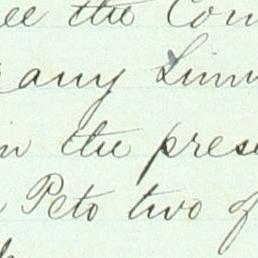 ee the Com
any
in the prese
Peto two of